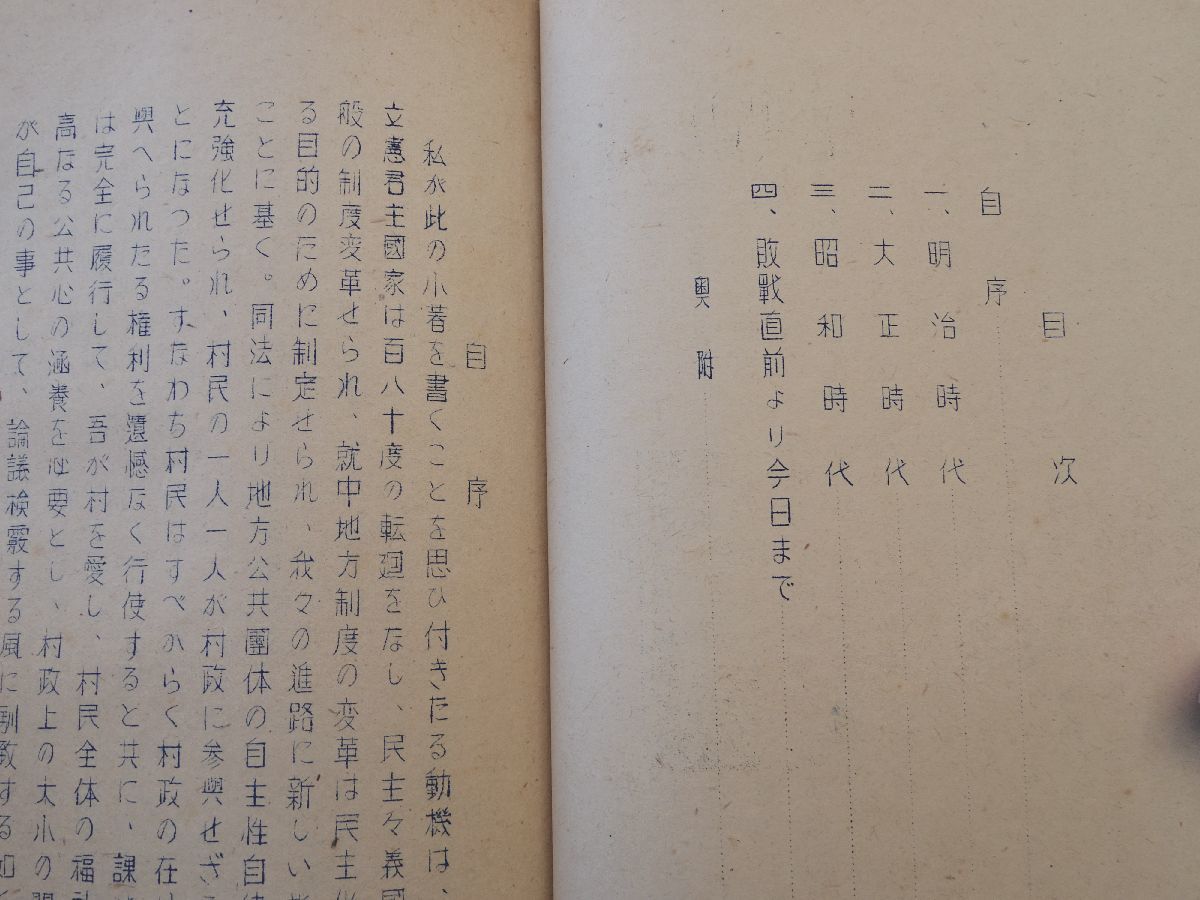 目次
自序
一、明治時代
二、大正時代
三、昭和時代
四、敗戰直前より今日まで
奥附
自序
私が此の小著を書くことを思ひ付きたる動機は、
立憲君主國家は百八十度の転廻をなし、民主々義國
般の制度変革せられ、就中地方制度の変革は民主
る目的のために制定せられ、我々の進路に新しい
ことに基く。同法により地方公共團体の自主性自律
充強化せられ、村民の一人一人が村政に参與せざ
とになつた。すなわち村民はすべからく村政の在
與へられたる権利を遺憾なく行使すると共に、課
は完全に履行して、吾が村を愛し、村民全体の福
高なる公共心の涵養を必要とし、村政上の大小の
が自己の事として、論議検覈する風に馴致する如